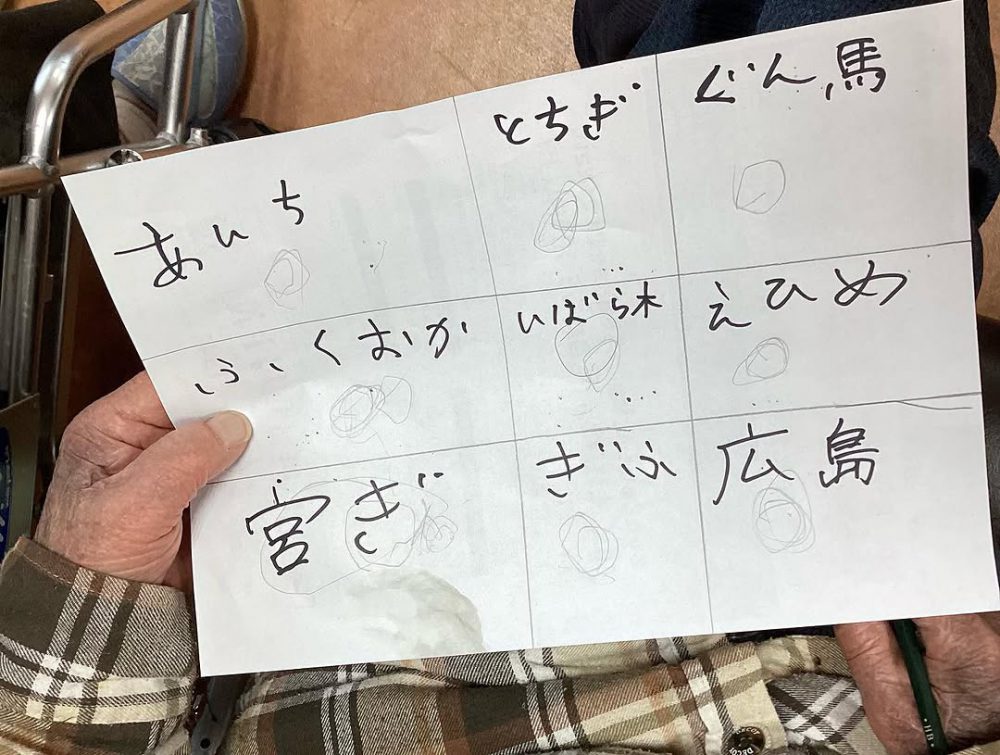 あいち
とちぎ
ぐん馬
ふくおか
いばら木
えひめ
宮ざき
ぎふ
広島